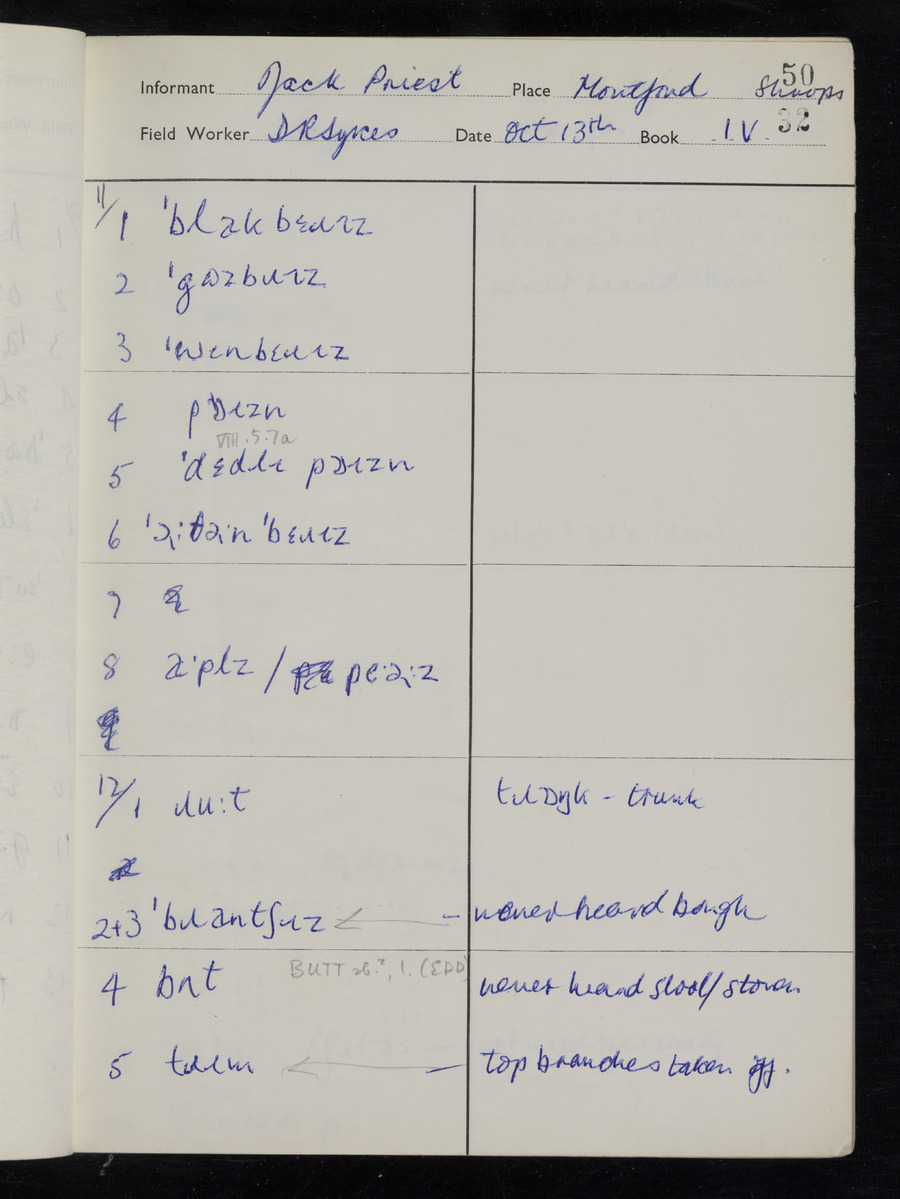 Informant Jack Priest Place Montford Shrops 50
Field Worker D R Sykes Date Oct 13th Book IV 32
11/1 ˈblakbɛɹɪz
2 ˈgʊzbɹɪz
3 ˈwɪnbɛɹɪz
4 pɒɪzn
VIII.5.7a
5 ˈdɛdlɪ pɒɪzn
6
7
8 a·plz /
12/1 ɹu:t tɹʊŋk - trunk
2+3 ˈbɹantʃɪz - never heard bough
4 bʌt BUTT sb.², 1. (EDD) never heard stool/stoven
5 tɹɪm - top branches taken off.